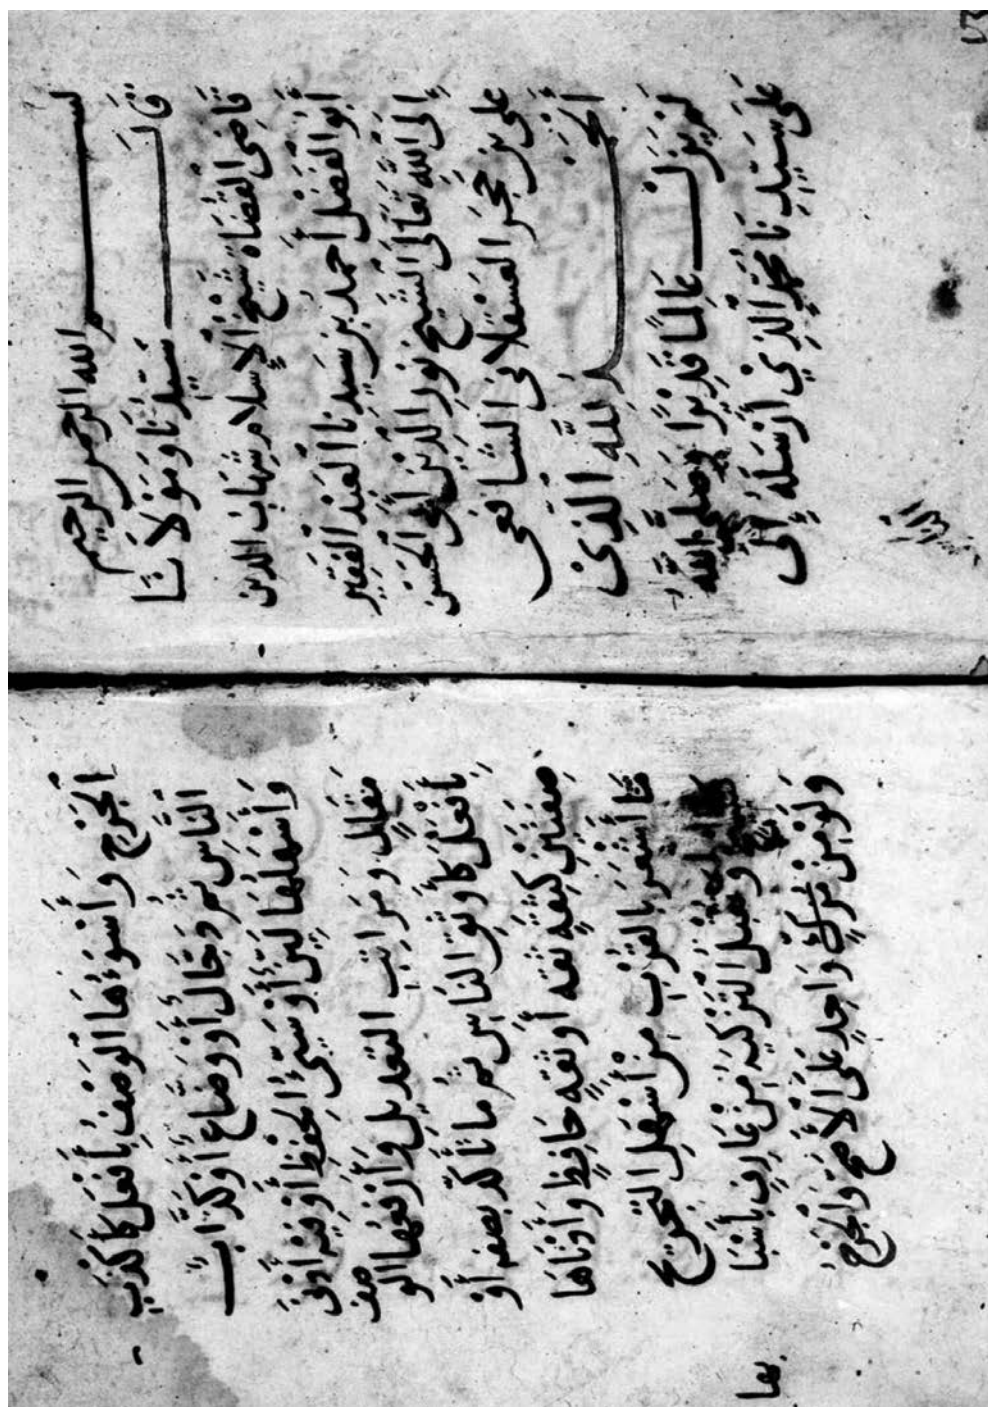 بسم الله الرحمن الرحيم
قَالَ سَيِّدُنَا وَمَوْلَانَا
قَاضِى الْقُضَاةِ شَيْخُ الْإِسْلَامِ شِهَابُ الدين
أَبُو الْفَضْلِ أَحْمَدُ بْن سَيِّدِنَا الْعَبْدِ الْفَقِيرِ
إِلَى اللَّهِ تَعَالَى الشَّيْخ نُورِ الدِّيْنِ أَبِي الْحَسَن
عَلِى بْنِ حَجَرٍ العَسْقَلَانِى الشافعى
الْحَمْدُ لِلَّهِ الَّذِىْ
لَمْ يَزَلْ عَالِمًا قَدِيْرًا وَصَلَّى اللَّهُ
عَلَى سَيِّدِنَا مُحَمَّدٍ الَّذِيْ أَرْسَلَهُ إِلَى
الْجَرْحِ وَأَسْوَءُهَا الْوَصْفُ بِأَفْعَلَ كَأَكْذَبِ
النَّاسِ ثم دَجَّال أَوْ وَضَّاع أَوْ كَذَّاب
وَأَسْهَلُهَا لَيِّنٌ أَوْ سَيِّئُ الْحِفْظِ أَوْ فِيْهِ أَدْنَى
مَقَال وَمَرَاتِب التعديل وَأَرْفَعُهَا الوصف
بِأَفْعَلَ كَأَوْثَقِ النَّاسِ ثُمَّ مَا تَأَكَّدَ بصفه أَوْ
صِفَتَيْنِ كَثِقَةٍ ثِقَه أَوْ ثِقَهٍ حَافِظٍ وَأَدْنَاهَا
مَا أَشْعَرَ بِالقُرْبِ مِنْ أَسْهَلِ التجْرِيْحِ
وتقبل التَّزْكِيَه مِنْ عَارِفٍ بِأَسْبَا
بها
وَلَوْ مِنْ مُزَكٍّ وَاحِدٍ عَلَى الْأَصَحّ وَالْجَرْحُ